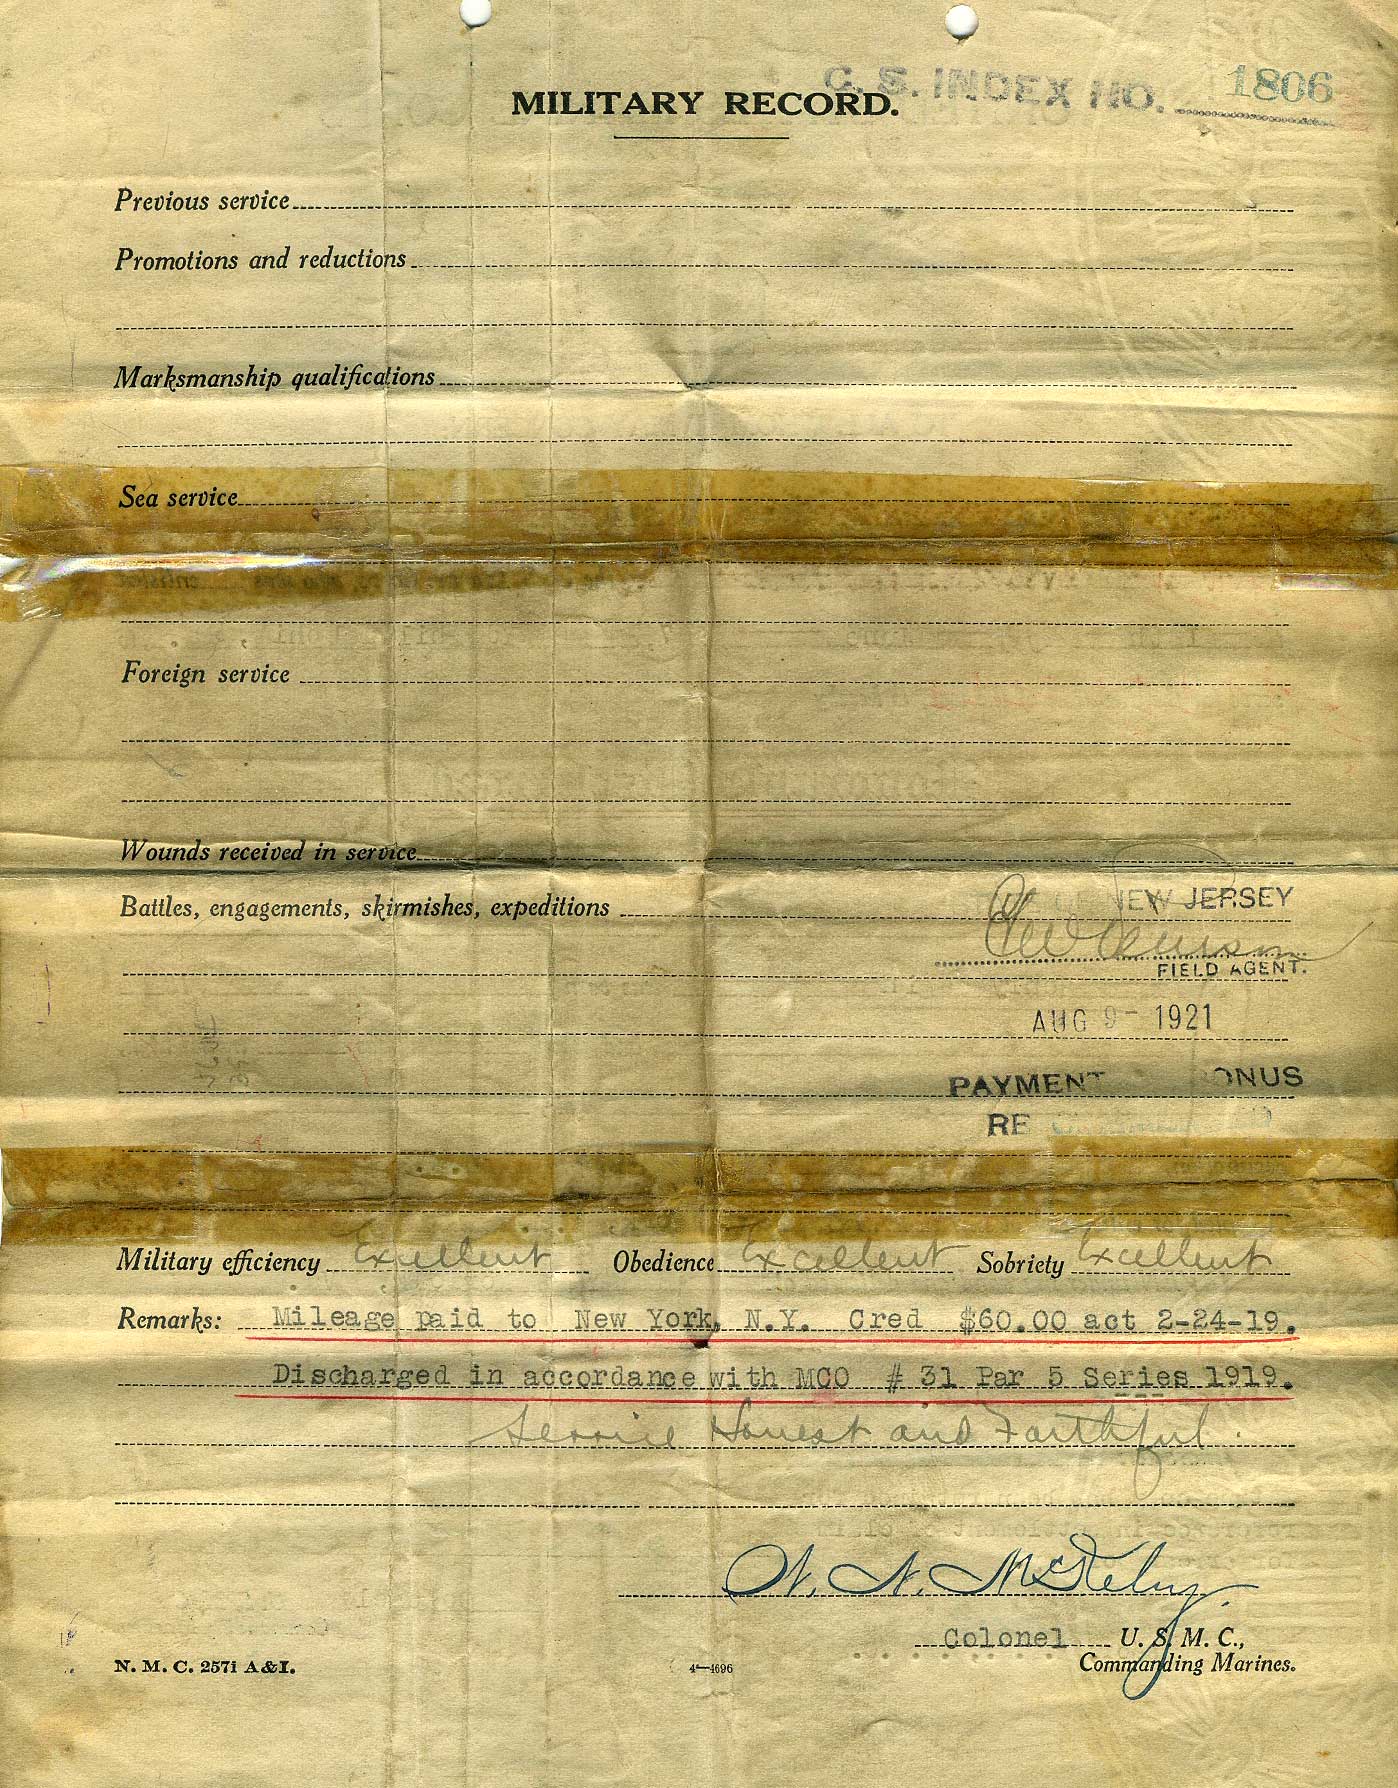 C. S. INDEX NO. 1806
MILITARY RECORD.
Previous service
Promotions and reductions
Marksmanship qualifications
Sea service
Foreign service
Wounds received in service
Battles, engagements, skirmishes, expeditions
NEW JERSEY
FIELD AGENT.
AUG 9- 1921
PAYMENT ONUS
RE
Military efficiency Excellent Obedience Excellent Sobriety Excellent
Remarks: Mileage paid to New York, N.Y. Cred $60.00 act 2-24-19.
Discharged in accordance with MCO # 31 Par 5 Series 1919.
Service Honest and Faithful.
Colonel U. S. M. C.,
Commanding Marines.
N. M. C. 257i A&I.
4—4696